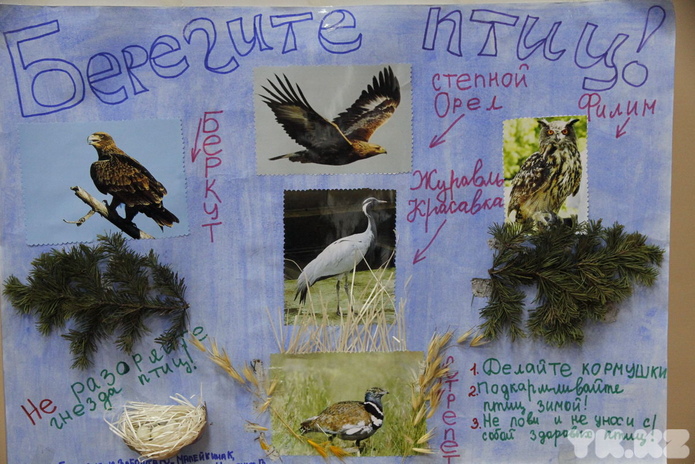 Берегите птиц!
степной
Орел
Филим
Беркут
Журавль
Красавка
Не разоряйте
гнезда птиц!
стрепет
1. Делайте кормушки
2. Подкармливайте
птиц зимой!
3. Не лови и не уноси с
собой здоровую птицу!
YK.KZ